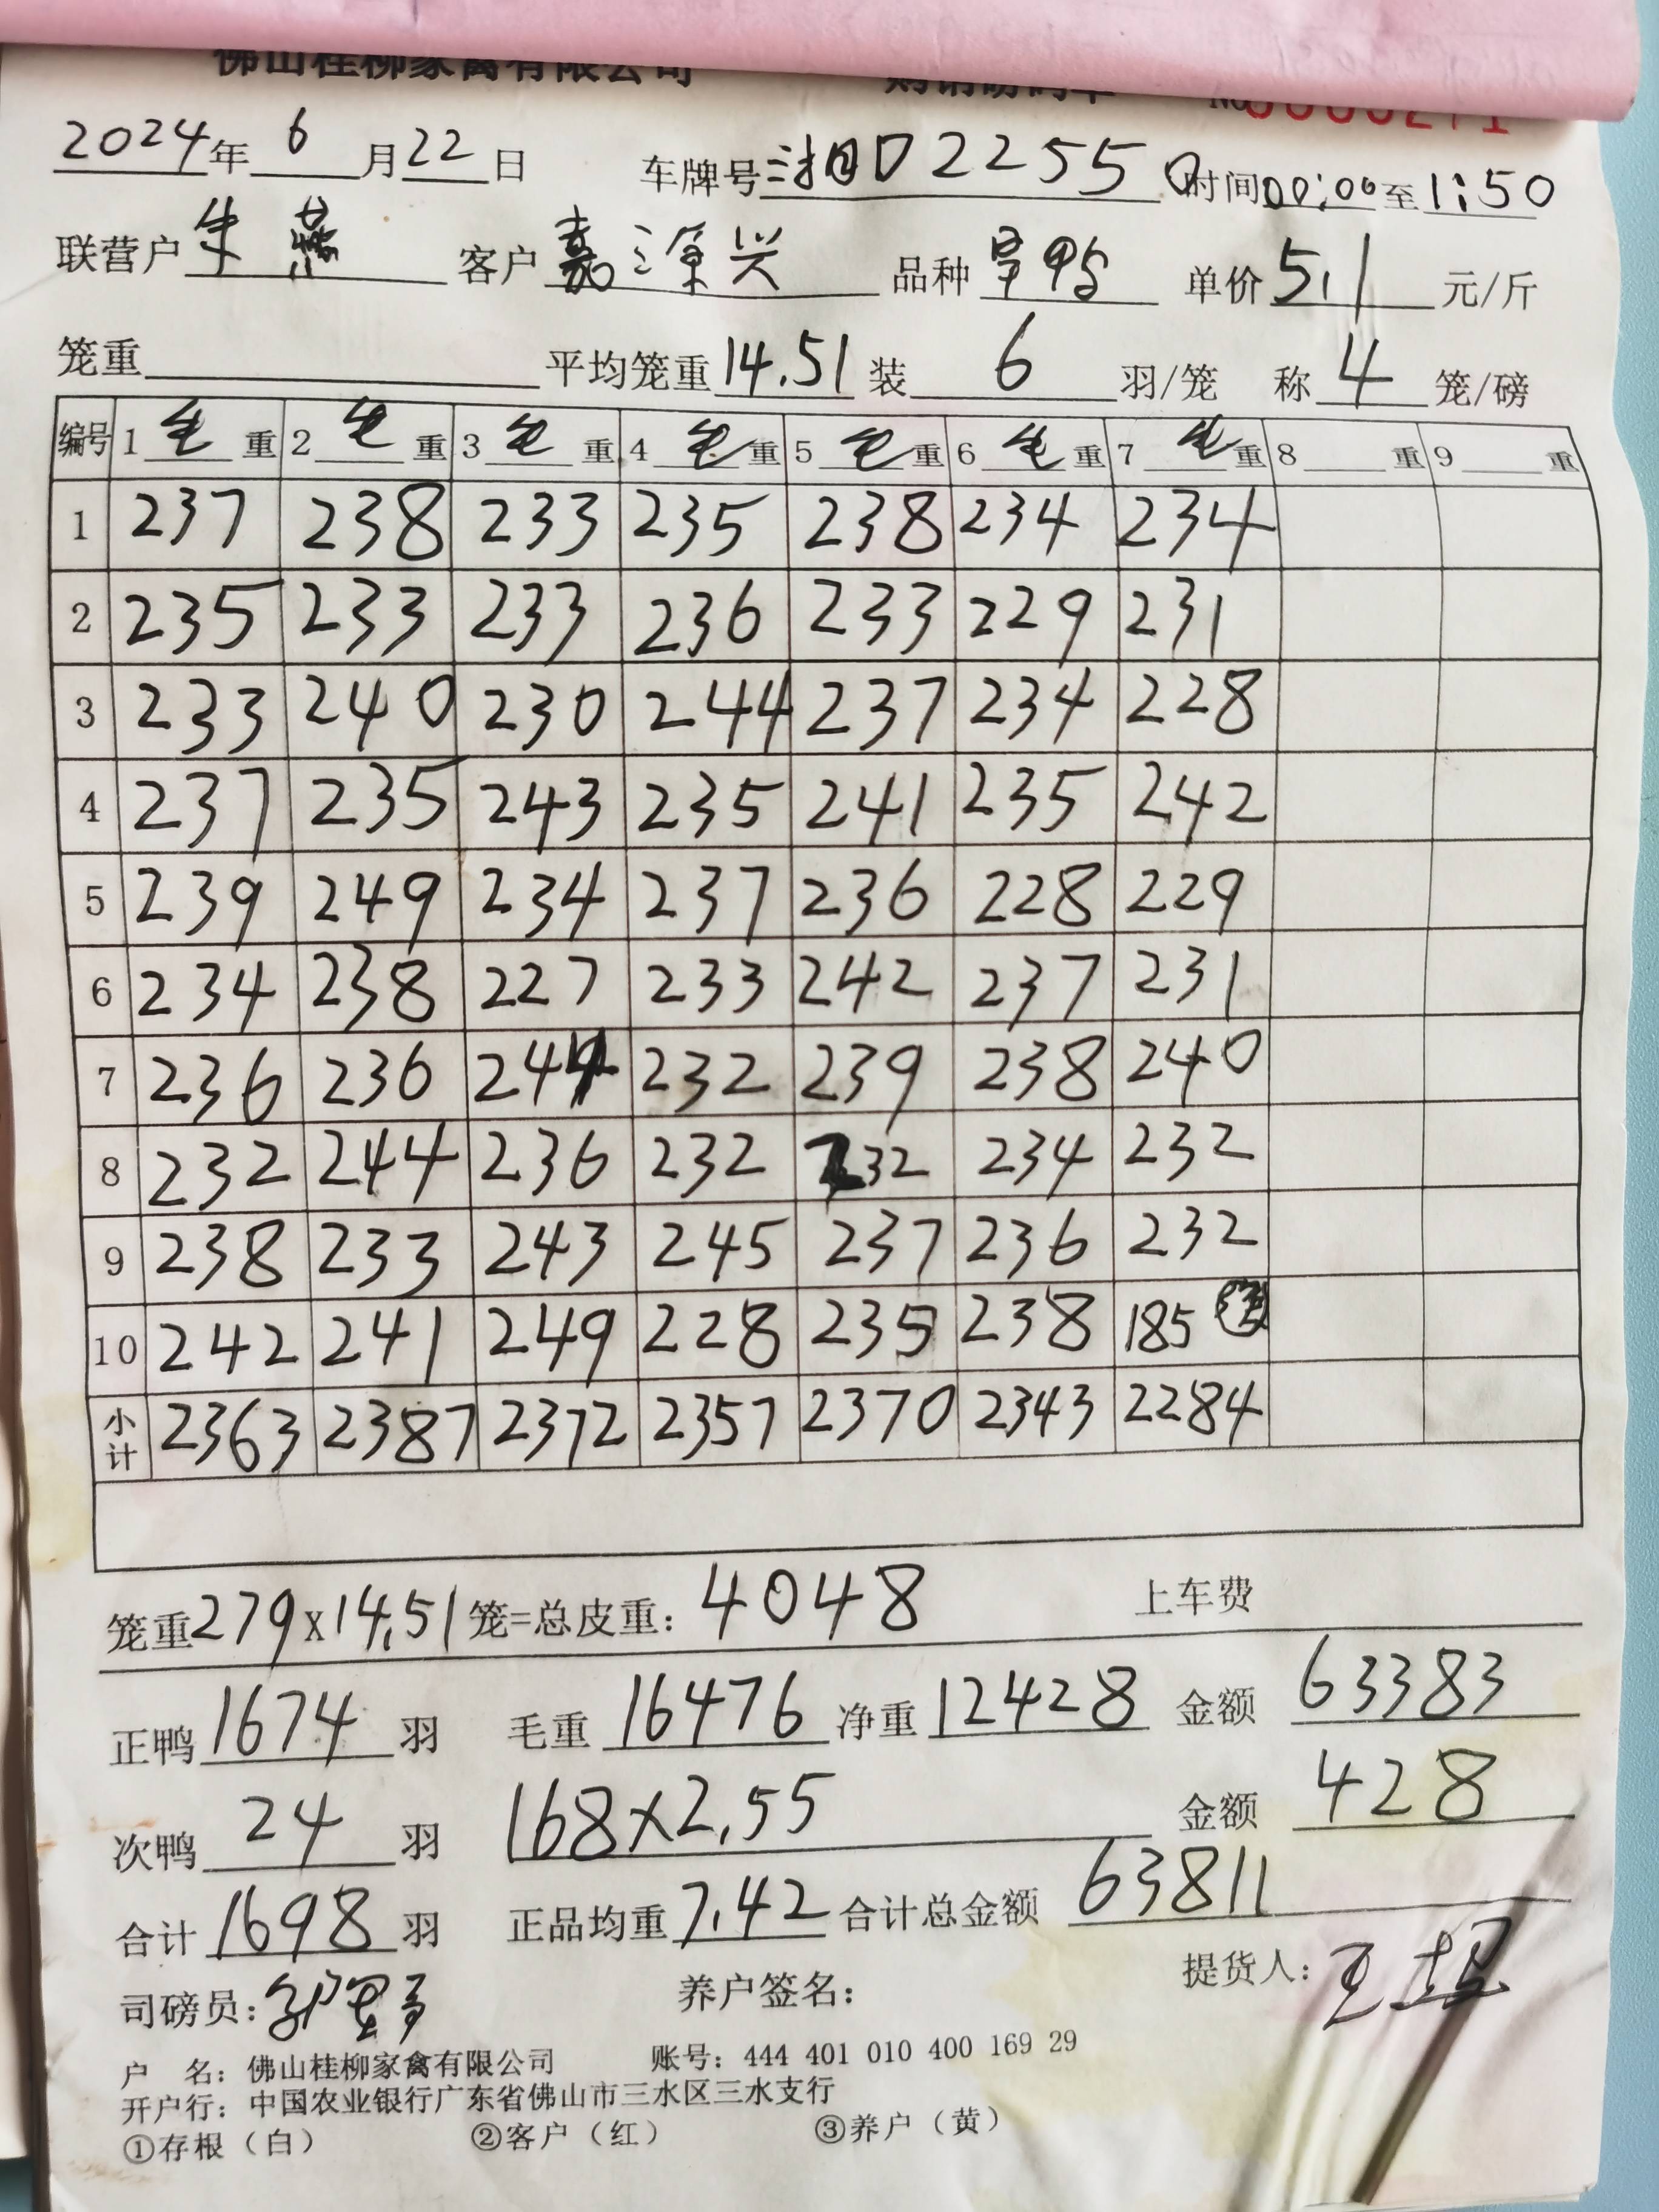 佛山桂柳家禽有限公司 购销磅码单 No 0000271
2024年 6 月 22 日 车牌号 湘D22550 时间 00:00 至 1:50
联营户 朱 客户 嘉 兴 品种 鸭 单价 5.1 元/斤
笼重 平均笼重 14.51 装 6 羽/笼 称 4 笼/磅
编号 1 毛 重 2 毛 重 3 毛 重 4 毛 重 5 毛 重 6 毛 重 7 毛 重 8 重 9 重
1 237 238 233 235 238 234 234
2 235 233 233 236 233 229 231
3 233 240 230 244 237 234 228
4 237 235 243 235 241 235 242
5 239 249 234 237 236 228 229
6 234 238 227 233 242 237 231
7 236 236 244 232 239 238 240
8 232 244 236 232 232 234 232
9 238 233 243 245 237 236 232
10 242 241 249 228 235 238 185 ③
小计 2363 2387 2372 2357 2370 2343 2284
笼重 279 x 14.51 笼=总皮重: 4048 上车费
正鸭 1674 羽 毛重 16476 净重 12428 金额 63383
次鸭 24 羽 168×2.55 金额 428
合计 1698 羽 正品均重 7.42 合计总金额 63811
司磅员: 养户签名: 提货人: 王
户 名: 佛山桂柳家禽有限公司 账号: 444 401 010 400 169 29
开户行: 中国农业银行广东省佛山市三水区三水支行
①存根(白) ②客户(红) ③养户(黄)